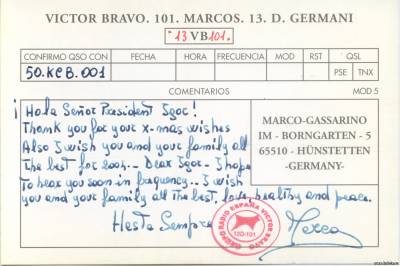 VICTOR BRAVO. 101. MARCOS. 13. D. GERMANI
* 13 VB 101.
CONFIRMO QSO CON FECHA HORA FRECUENCIA MOD RST QSL
50.KCB.001 PSE TNX
COMENTARIOS MOD 5
¡Hola Señor President Igor!
Thank you for your x-mas wishes
Also I wish you and your family all
The best for 2004.. Dear Igor.. I hope
To hear you soon in frequency.. I wish
you and your family all the best, love, healthy and peace.
Hasta Sempre
Marco
MARCO-GASSARINO
IM - BORNGARTEN - 5
65510 - HÜNSTETTEN
-GERMANY-
GRUPO RADIO ESPAÑA VICTOR BRAVO
13D-101